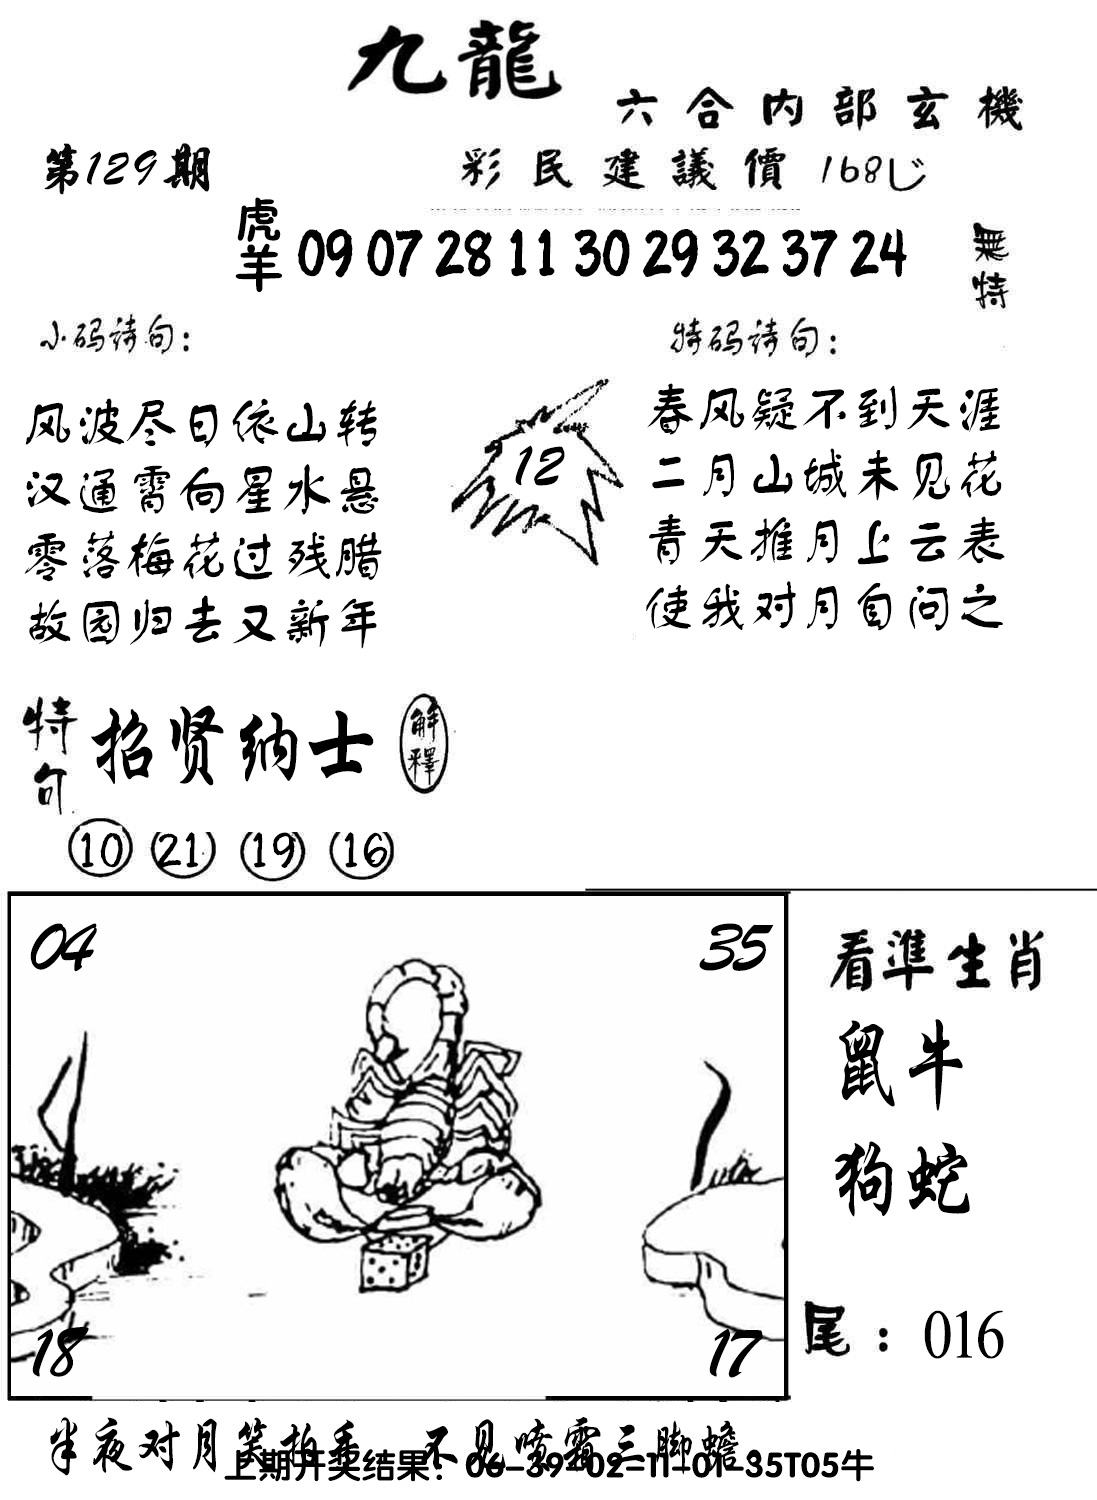 九龍
六合内部玄機
第129期
彩民建議價 168
虎羊 09 07 28 11 30 29 32 37 24
無特
小码诗句：
风波尽日依山转
汉通霄向星水悬
零落梅花过残腊
故园归去又新年
12
特码诗句：
春风疑不到天涯
二月山城未见花
青天推月上云表
使我对月自问之
特句 招贤纳士 解釋
10 21 19 16
04 35
18 17
看準生肖
鼠牛
狗蛇
尾：016
半夜对月笑拍手 不见喷霜三脚蟾
上期开奖结果：06-39-02-11-01-35T05牛